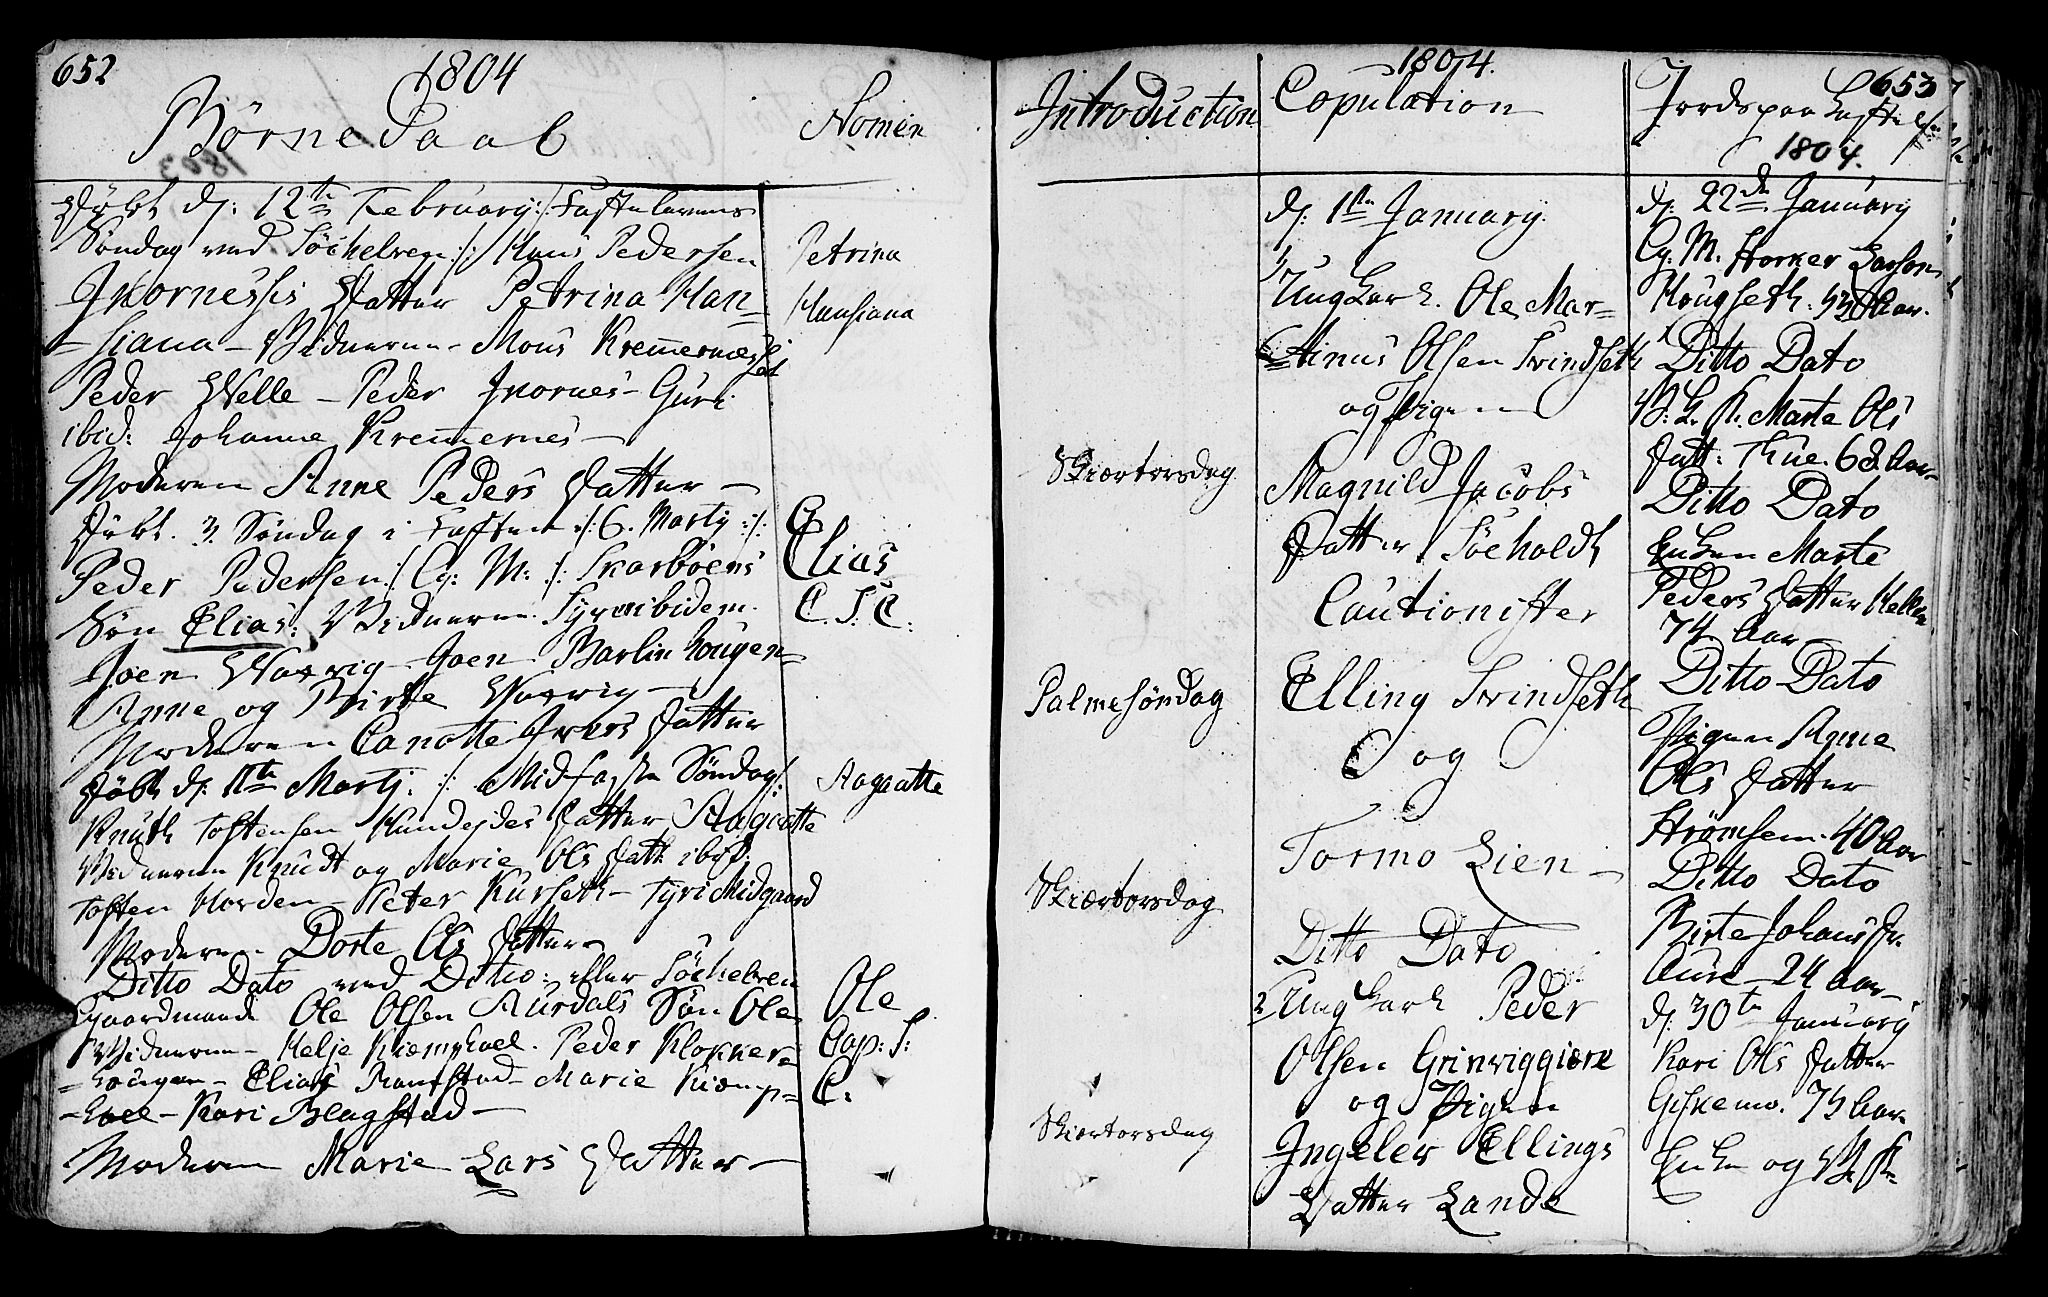 652
1804
Børne Daab
Nomen
Døbt d: 12te February :/: Fastelavens
Søndag ved Söehelven :/: Hans Pedersen
Ikornesses Datter Petrina Han-
-siana - Vidnerne - Mons Kremmernæsset
Peder Welle - Peder Ikornes - Guri
ibid: Johanne Kremmernes -
Moderen Anne Peders Datter -
Døbt 3. Søndag i Fasten :/: 6. Martj :/:
Peder Pedersen :/: Cg: M: :/: Skarbøens
Søn Elias: Vidnerne: Syver ibidem.
Joen Waxvig - Joen Barlinhougen -
Anne og Birthe Waxvig -
Moderen Canotte Ivers Datter
Døbt d: 11te Martj: :/: Midfaste Søndag :/:
Knuth Toftensen Hundejdes Datter Aagaatte
Vidnerne Knudt og Marie Ols Datt: ibid:
Toften Horden - Peter Kurseth - Tyri Midgaard
Moderen Dorte Ols Datter -
Ditto Dato ved Ditto: eller Söehelven
Gaardmand Ole Olsen Aursdals Søn Ole
Vidnerne - Helje Kiemphoel. Peder Klokker-
-hougen - Elias Ramstad - Marie Kiemp-
-hoel - Kari Blagstad -
Moderen Marie Lars Datter -
Petrina
Hansiana
Elias
C. S: C:
Aagaatte
Ole
Cop: S:
C:
1804.
653
Introduction
Skiertorsdag
Palmesøndag
Skiertorsdag
Skiertorsdag
Copulation
d: 1ste January.
1/ Ung Karl. Ole Mar-
-tinus Olsen Svindseth
og Pigen
Magnild Jacobs
Datter Söeholdt
Cautionister
Elling Svindseth
og
Tormo Lien -
Ditto Dato
2 Ung Karl Peder
Olsen Grinviggiere
og Pigen
Ingelev Ellings
Datter Lande
Jordspaakastelse
1804.
d: 22de January
Cg. M. Storker Larsen
Hougseth. 53 Aar.
Ditto Dato
Marte Ols
Datt: Thue. 68 Aar
Ditto Dato
Enken Marte
Peders Datter Helle
74 Aar
Ditto Dato
Pigen Anne
Ols Datter
Strømsem. 40 Aar
Ditto Dato
Birte Johans Dr.
Aure - 24 Aar -
d: 30te January
Kari Ols Datter
Giskemo. 75 Aar
Enke og